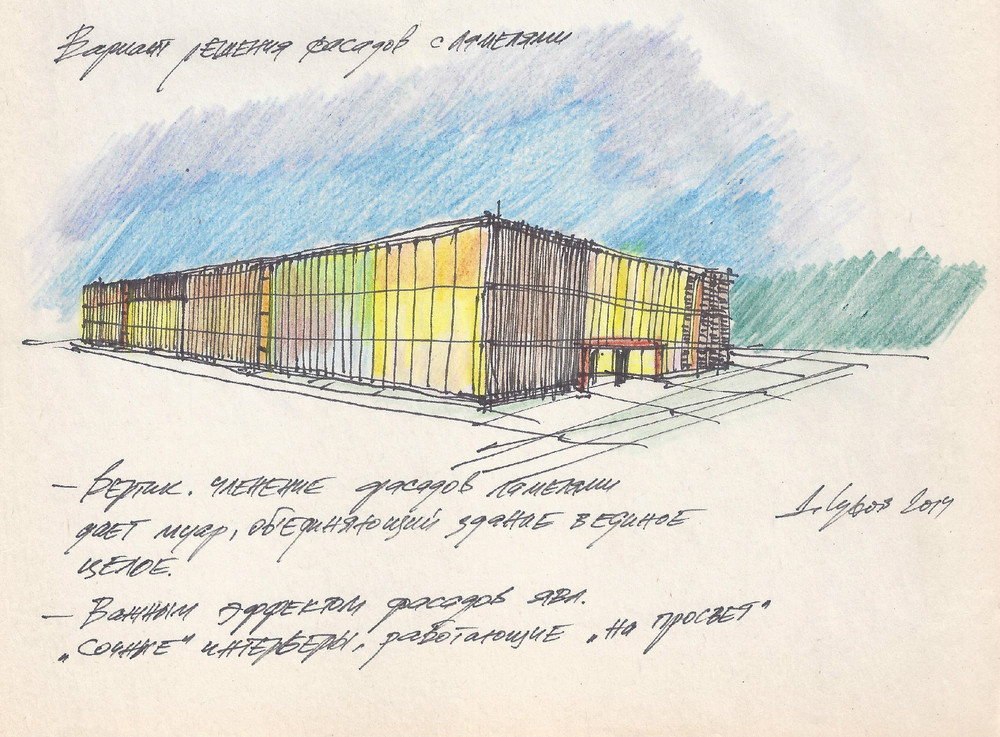 Вариант решения фасадов с ламелями
– Вертик. членение фасадов ламелями
дает муар, объединяющий здание в единое
целое.
– Важным эффектом фасадов явл.
„сочные" интерьеры, работающие „на просвет"
2014